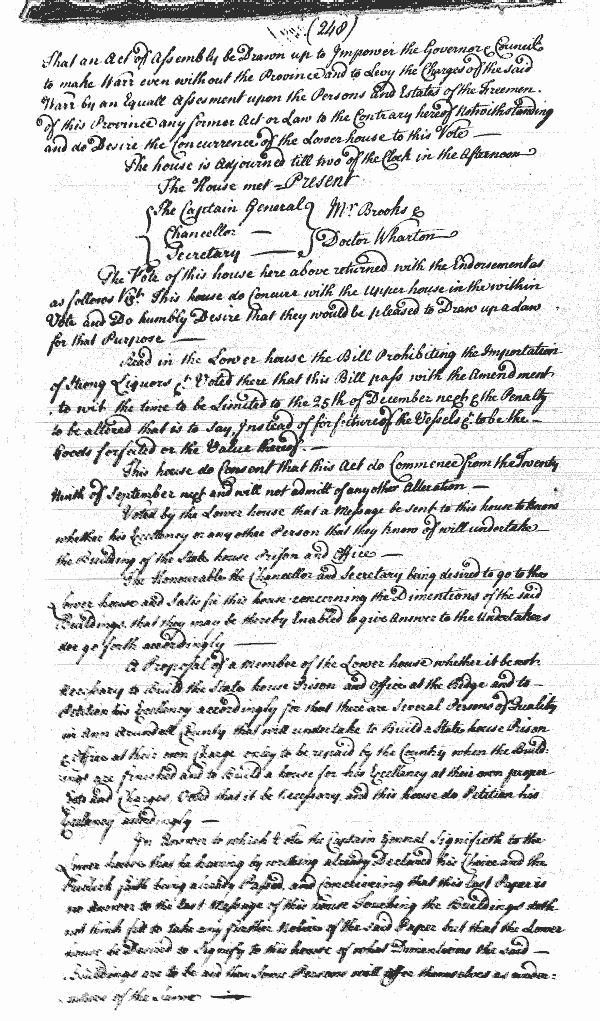 (248)
That an Act of Assembly be Drawn up to Impower the Governor & Council
to make Warr even without the Province and to Levy the Charges of the said
Warr by an Equall Assesment upon the Persons and Estates of the Freemen.
of this Province any former Act or Law to the Contrary hereof Notwithstanding
and do Desire the Concurrence of the Lower house to this Vote —
The house is Adjourned till two of the Clock in the Afternoon
The House met = Present
The Captain General } Mr Brooks &
Chancellor —
Secretary — Doctor Wharton
The Vote of this house here above returned with the Endorsement as
as follows Vizt. This house do Concurr with the Upper house in the within
Vote and Do humbly Desire that they would be pleased to Draw up a Law
for that Purpose —
Read in the Lower house the Bill Prohibiting the Importation
of Strong Liquors &c. Voted there that this Bill pass with the Amendment
to wit the time to be Limited to the 25th of December next & the Penalty
to be altered that is to Say, Instead of forfeiture of the Vessels &c. to be the
Goods forfeited or the Value thereof. —
This house do Consent that this Act do Commence from the Twenty
Ninth of September next and will not admitt of any other Alteration —
Voted by the Lower house that a Message be sent to this house to know
whether his Excellency or any other Person that they know of will undertake
the Building of the State house Prison and Office —
The Honourable the Chancellor and Secretary being desired to go to the
Lower house and Satisfie this house concerning the Dimentions of the said
Buildings, that they may be thereby Enabled to give Answer to the Undertakers
doe go forth accordingly —
A Proposal of a Member of the Lower house whether it be not
necessary to Build the State house Prison and Office at the Ridge and to
Petition his Excellency accordingly for that there are Several Persons of Quality
in Ann Arundell County that will undertake to Build a State house Prison
& Office at their own Charge only to be repaid by the Country when the Build-
ings are finished and to Build a house for his Excellency at their own proper
Costs and Charges. Voted that it be Necessary and this house do Petition his
Excellency accordingly —
In Answer to which Vote the Captain General Signifieth to the
Lower house that he having by writing already Declared his Choice and the
Publick faith being already Passed, and Conceiving that this last Paper is
no Answer to the last Message of this house Touching the Buildings doth
not think fit to take any further Notice of the said Paper but that the Lower
house be Desired to Signify to this house of what Dimentions the said —
Buildings are to be and then Some Persons will offer themselves as under-
takers of the Same —